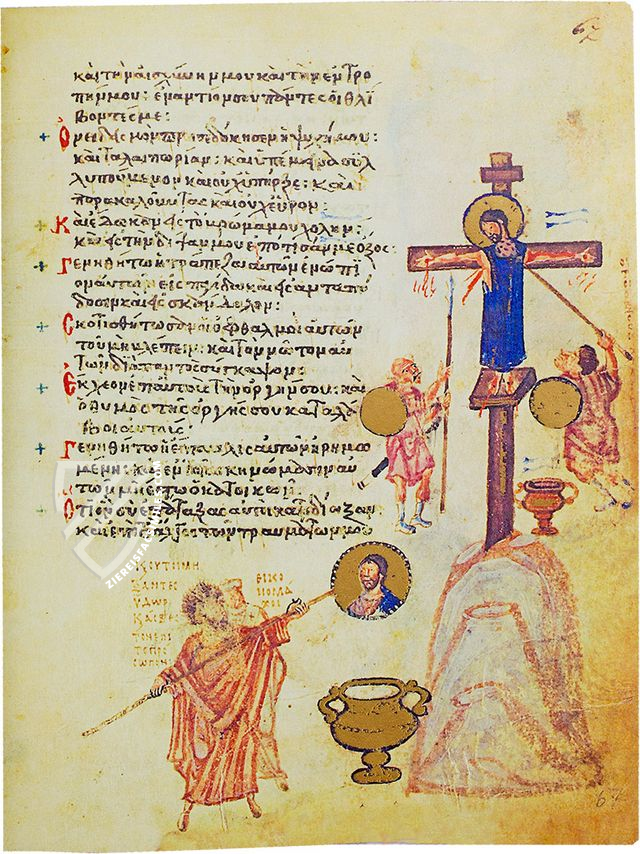 67
καὶ τὴν αἰσχύνην μου καὶ τὴν ἐντρο
πήν μου: ἐναντίον σου πάντες οἱ θλί
βοντές με:
Ὀνειδισμὸν προσεδόκησεν ἡ ψυχή μου:
καὶ ταλαιπωρίαν: καὶ ὑπέμεινα συλ
λυπούμενον καὶ οὐχ ὑπῆρξε: καὶ
παρακαλοῦντας καὶ οὐχ εὗρον:
Καὶ ἔδωκαν εἰς τὸ βρῶμά μου χολήν:
καὶ εἰς τὴν δίψαν μου ἐπότισάν με ὄξος:
Γενηθήτω ἡ τράπεζα αὐτῶν ἐνώπι
ον αὐτῶν εἰς παγίδα καὶ εἰς ἀνταπό
δοσιν καὶ εἰς σκάνδαλον:
Σκοτισθήτωσαν οἱ ὀφθαλμοὶ αὐτῶν
τοῦ μὴ βλέπειν: καὶ τὸν νῶτον αὐ
τῶν διὰ παντὸς σύγκαμψον:
Ἔκχεον ἐπ' αὐτοὺς τὴν ὀργήν σου: καὶ
ὁ θυμὸς τῆς ὀργῆς σου καταλά
βοι αὐτούς:
Γενηθήτω ἡ ἔπαυλις αὐτῶν ἠρημω
μένη: καὶ ἐν τοῖς σκηνώμασιν αὐ
τῶν μὴ ἔστω ὁ κατοικῶν
Ὅτι ὃν σὺ ἐπάταξας αὐτοὶ κατεδίωξαν
καὶ ἐπὶ τὸ ἄλγος τῶν τραυμάτων μου
ΕΙΚΟ
ΝΟΜΑ
ΧΟΙ
ΥΔΩΡ
67